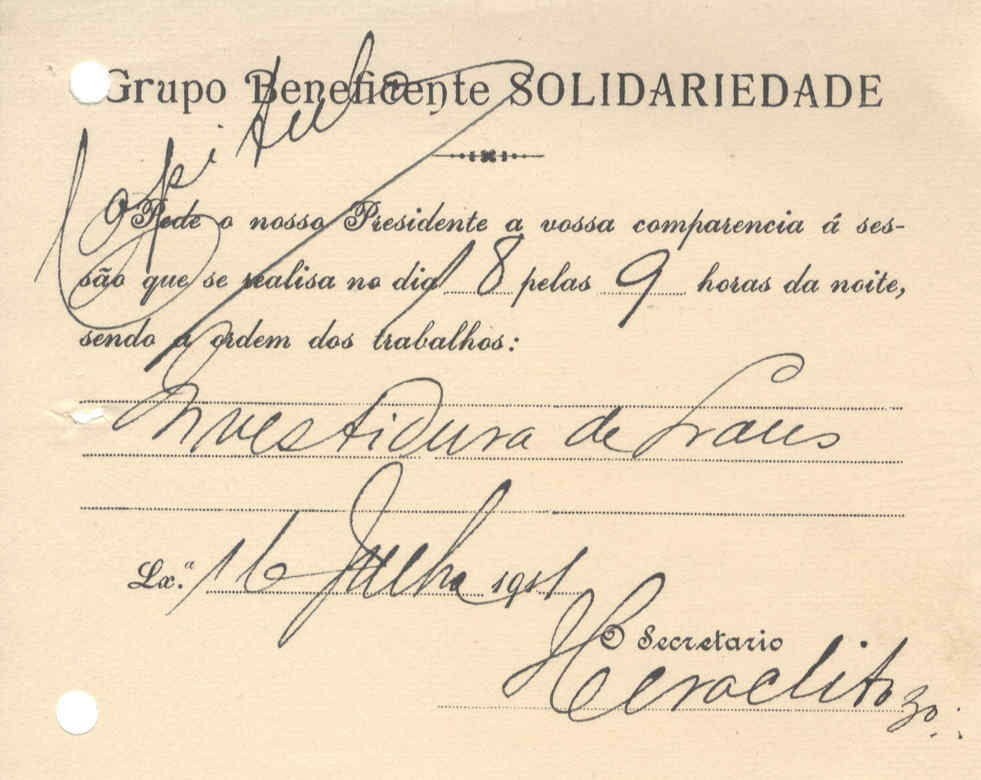 Grupo Beneficente SOLIDARIEDADE
Capitular
Pede o nosso Presidente a vossa comparencia á ses-
são que se realisa no dia 18 pelas 9 horas da noite,
sendo a ordem dos trabalhos:
Investidura de Graus
Lx.ª 16 Julho 1911
O Secretario
Heraclito 30.: